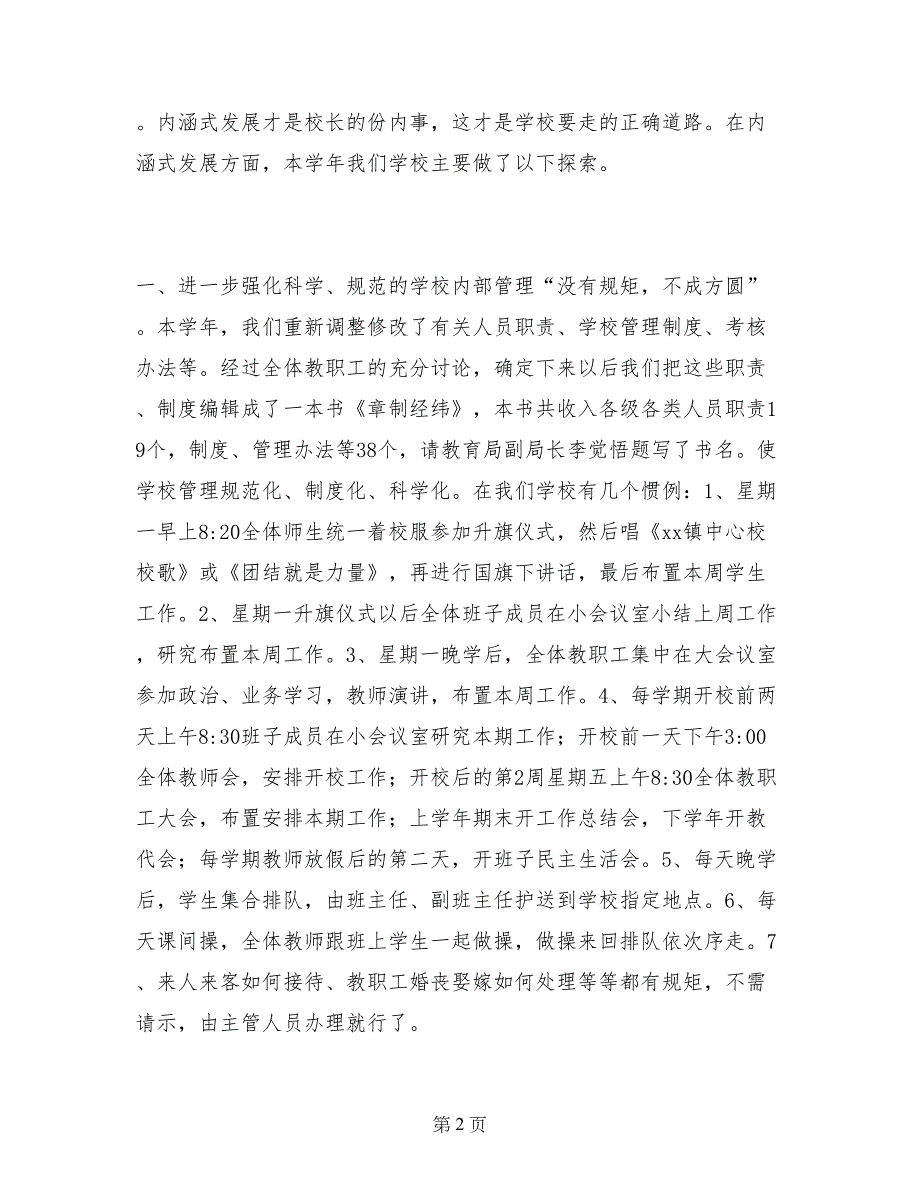 。内涵式发展才是校长的份内事，这才是学校要走的正确道路。在内
涵式发展方面，本学年我们学校主要做了以下探索。
一、进一步强化科学、规范的学校内部管理“没有规矩，不成方圆”
。本学年，我们重新调整修改了有关人员职责、学校管理制度、考核
办法等。经过全体教职工的充分讨论，确定下来以后我们把这些职责
、制度编辑成了一本书《章制经纬》，本书共收入各级各类人员职责1
9个，制度、管理办法等38个，请教育局副局长李觉悟题写了书名。使
学校管理规范化、制度化、科学化。在我们学校有几个惯例：1、星期
一早上8:20全体师生统一着校服参加升旗仪式，然后唱《xx镇中心校
校歌》或《团结就是力量》，再进行国旗下讲话，最后布置本周学生
工作。2、星期一升旗仪式以后全体班子成员在小会议室小结上周工作
，研究布置本周工作。3、星期一晚学后，全体教职工集中在大会议室
参加政治、业务学习，教师演讲，布置本周工作。4、每学期开校前两
天上午8:30班子成员在小会议室研究本期工作；开校前一天下午3:00
全体教师会，安排开校工作；开校后的第2周星期五上午8:30全体教职
工大会，布置安排本期工作；上学年期末开工作总结会，下学年开教
代会；每学期教师放假后的第二天，开班子民主生活会。5、每天晚学
后，学生集合排队，由班主任、副班主任护送到学校指定地点。6、每
天课间操，全体教师跟班上学生一起做操，做操来回排队依次序走。7
、来人来客如何接待、教职工婚丧娶嫁如何处理等等都有规矩，不需
请示，由主管人员办理就行了。
第 2 页